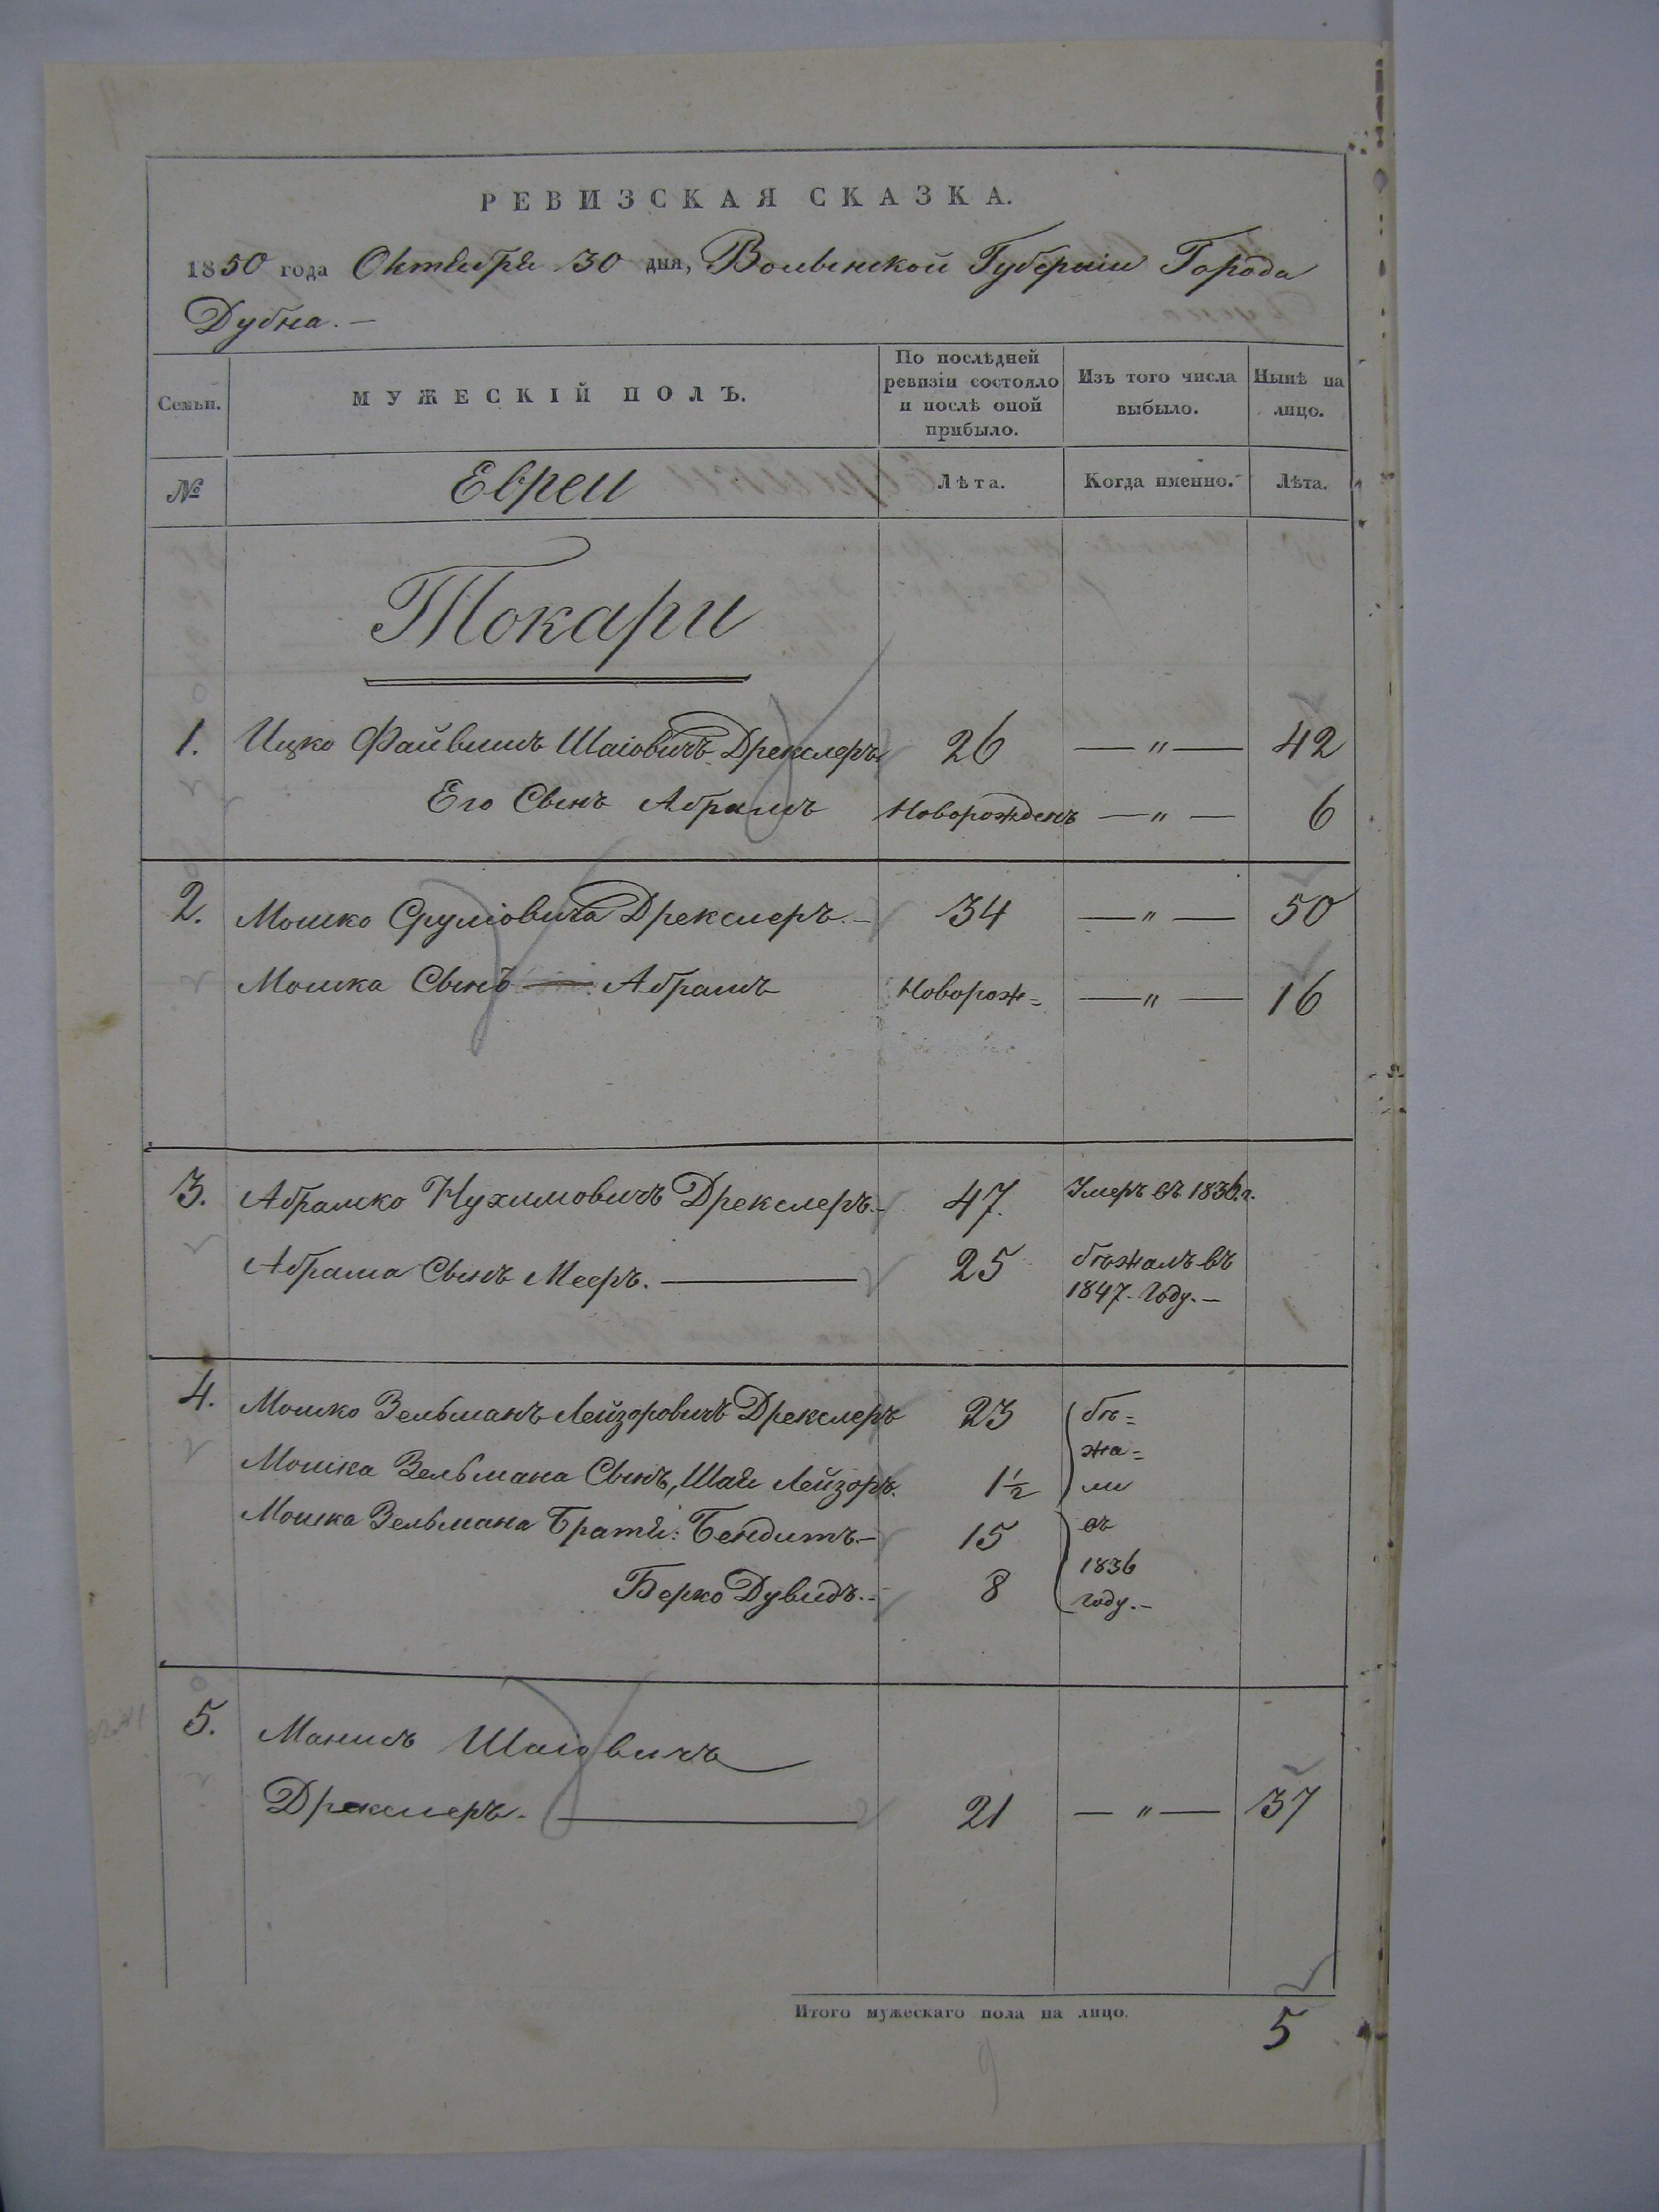 РЕВИЗСКАЯ СКАЗКА.
1850 года Октября 30 дня, Волынской Губернiи Города
Дубна. —
Семьи.
МУЖЕСКІЙ ПОЛЪ.
По послѣдней ревизіи состояло и послѣ оной прибыло.
Изъ того числа выбыло.
Нынѣ на лицо.
№
Евреи
Лѣта.
Когда именно.
Лѣта.
Токари
1. Ицко Файвишъ Шаіовичъ Дрекслеръ 26 — " — 42
Его Сынъ Абрамъ Новорожденъ — " — 6
2. Мошко Сруліовичъ Дрекслеръ. — 34 — " — 50
Мошка Сынъ — Абрамъ Новорож= — " — 16
3. Абрамко Нухимовичъ Дрекслеръ. 47. Умеръ въ 1836.г.
Абрама Сынъ Мееръ. — 25 бѣжалъ въ
1847. Году. —
4. Мошко Зельманъ Лейзоровичъ Дрекслеръ 23 бѣ=
жа=
Мошка Зельмана Сынъ, Шая Лейзоръ. 1½ ли
Мошка Зельмана Братья: Бендитъ. — 15 въ
1836
Берко Дувидъ. — 8 году. —
5. Манисъ Шаіовичъ
Дрекслеръ. — 21 — " — 37
Итого мужескаго пола на лицо. 5